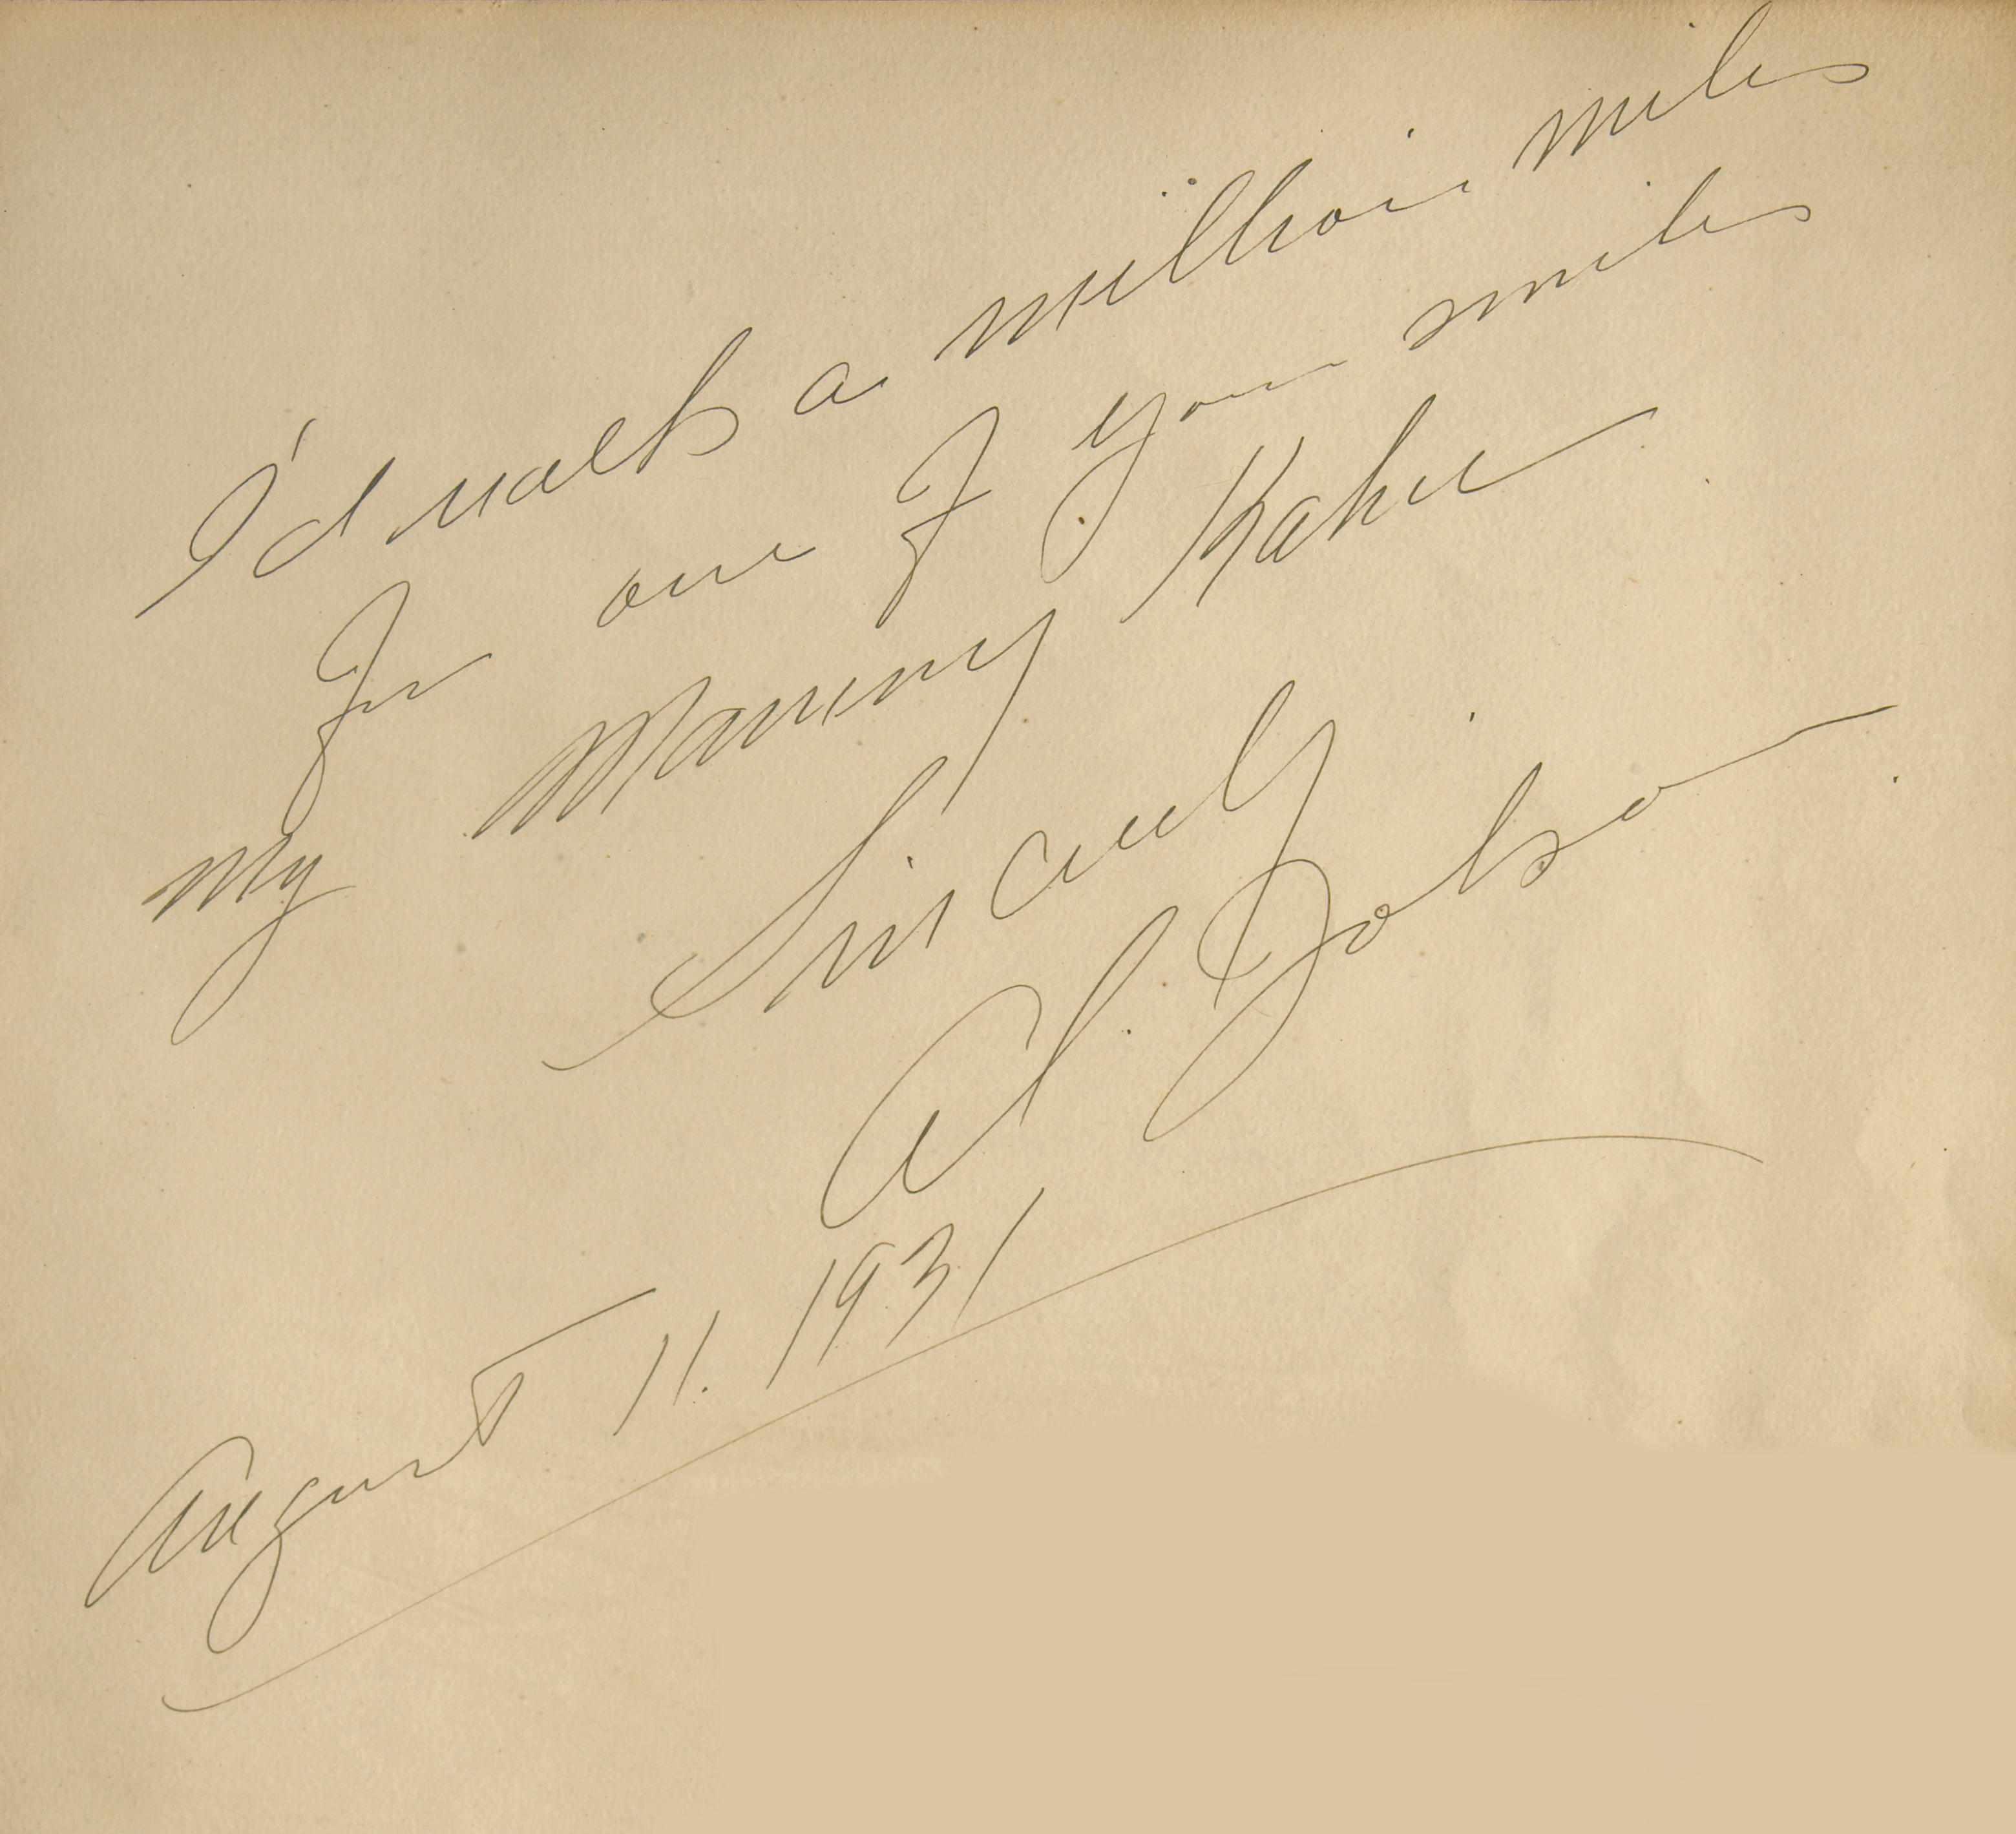 I'd walk a million miles
For one of your smiles
My Mammy Kahn
Sincerely
Al Jolson
August 11. 1931